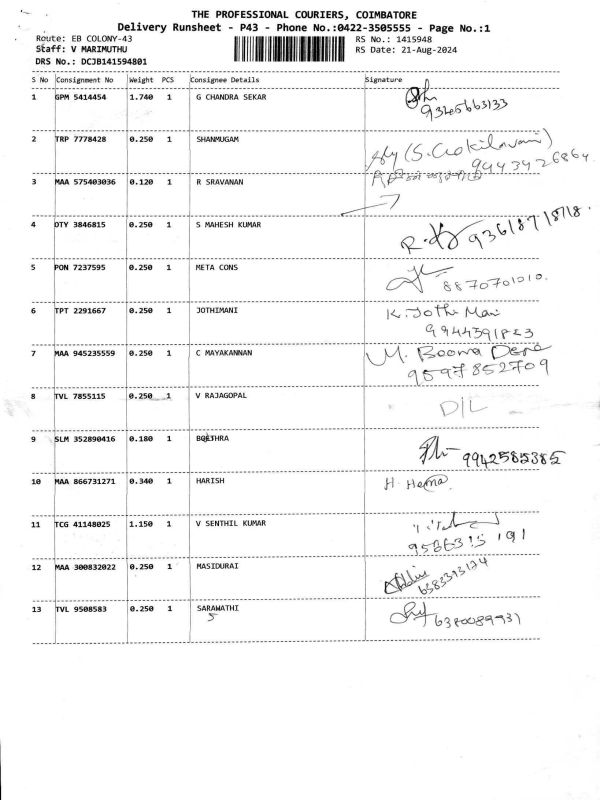 THE PROFESSIONAL COURIERS, COIMBATORE
Delivery Runsheet - P43 - Phone No.:0422-3505555 - Page No.:1
Route: EB COLONY-43 RS No.: 1415948
Staff: V MARIMUTHU RS Date: 21-Aug-2024
DRS No.: DCJB141594801
S No Consignment No Weight PCS Consignee Details Signature
1 GPM 5414454 1.740 1 G CHANDRA SEKAR
9345663133
2 TRP 7778428 0.250 1 SHANMUGAM
(S. Gokilavani)
9443426864
3 MAA 575403036 0.120 1 R SRAVANAN
4 OTY 3846815 0.250 1 S MAHESH KUMAR
9361871818
5 PON 7237595 0.250 1 META CONS
8870701010.
6 TPT 2291667 0.250 1 JOTHIMANI K. Jothi Mani
7 MAA 945235559 0.250 1 C MAYAKANNAN M. Booma Devi
9597852709
8 TVL 7855115 0.250 1 V RAJAGOPAL D/L
9 SLM 352890416 0.180 1 BOETHRA
9942585385
10 MAA 866731271 0.340 1 HARISH H. Hema
11 TCG 41148025 1.150 1 V SENTHIL KUMAR
12 MAA 300832022 0.250 1 MASIDURAI
6382393124
13 TVL 9508583 0.250 1 SARAWATHI
S
6380089931